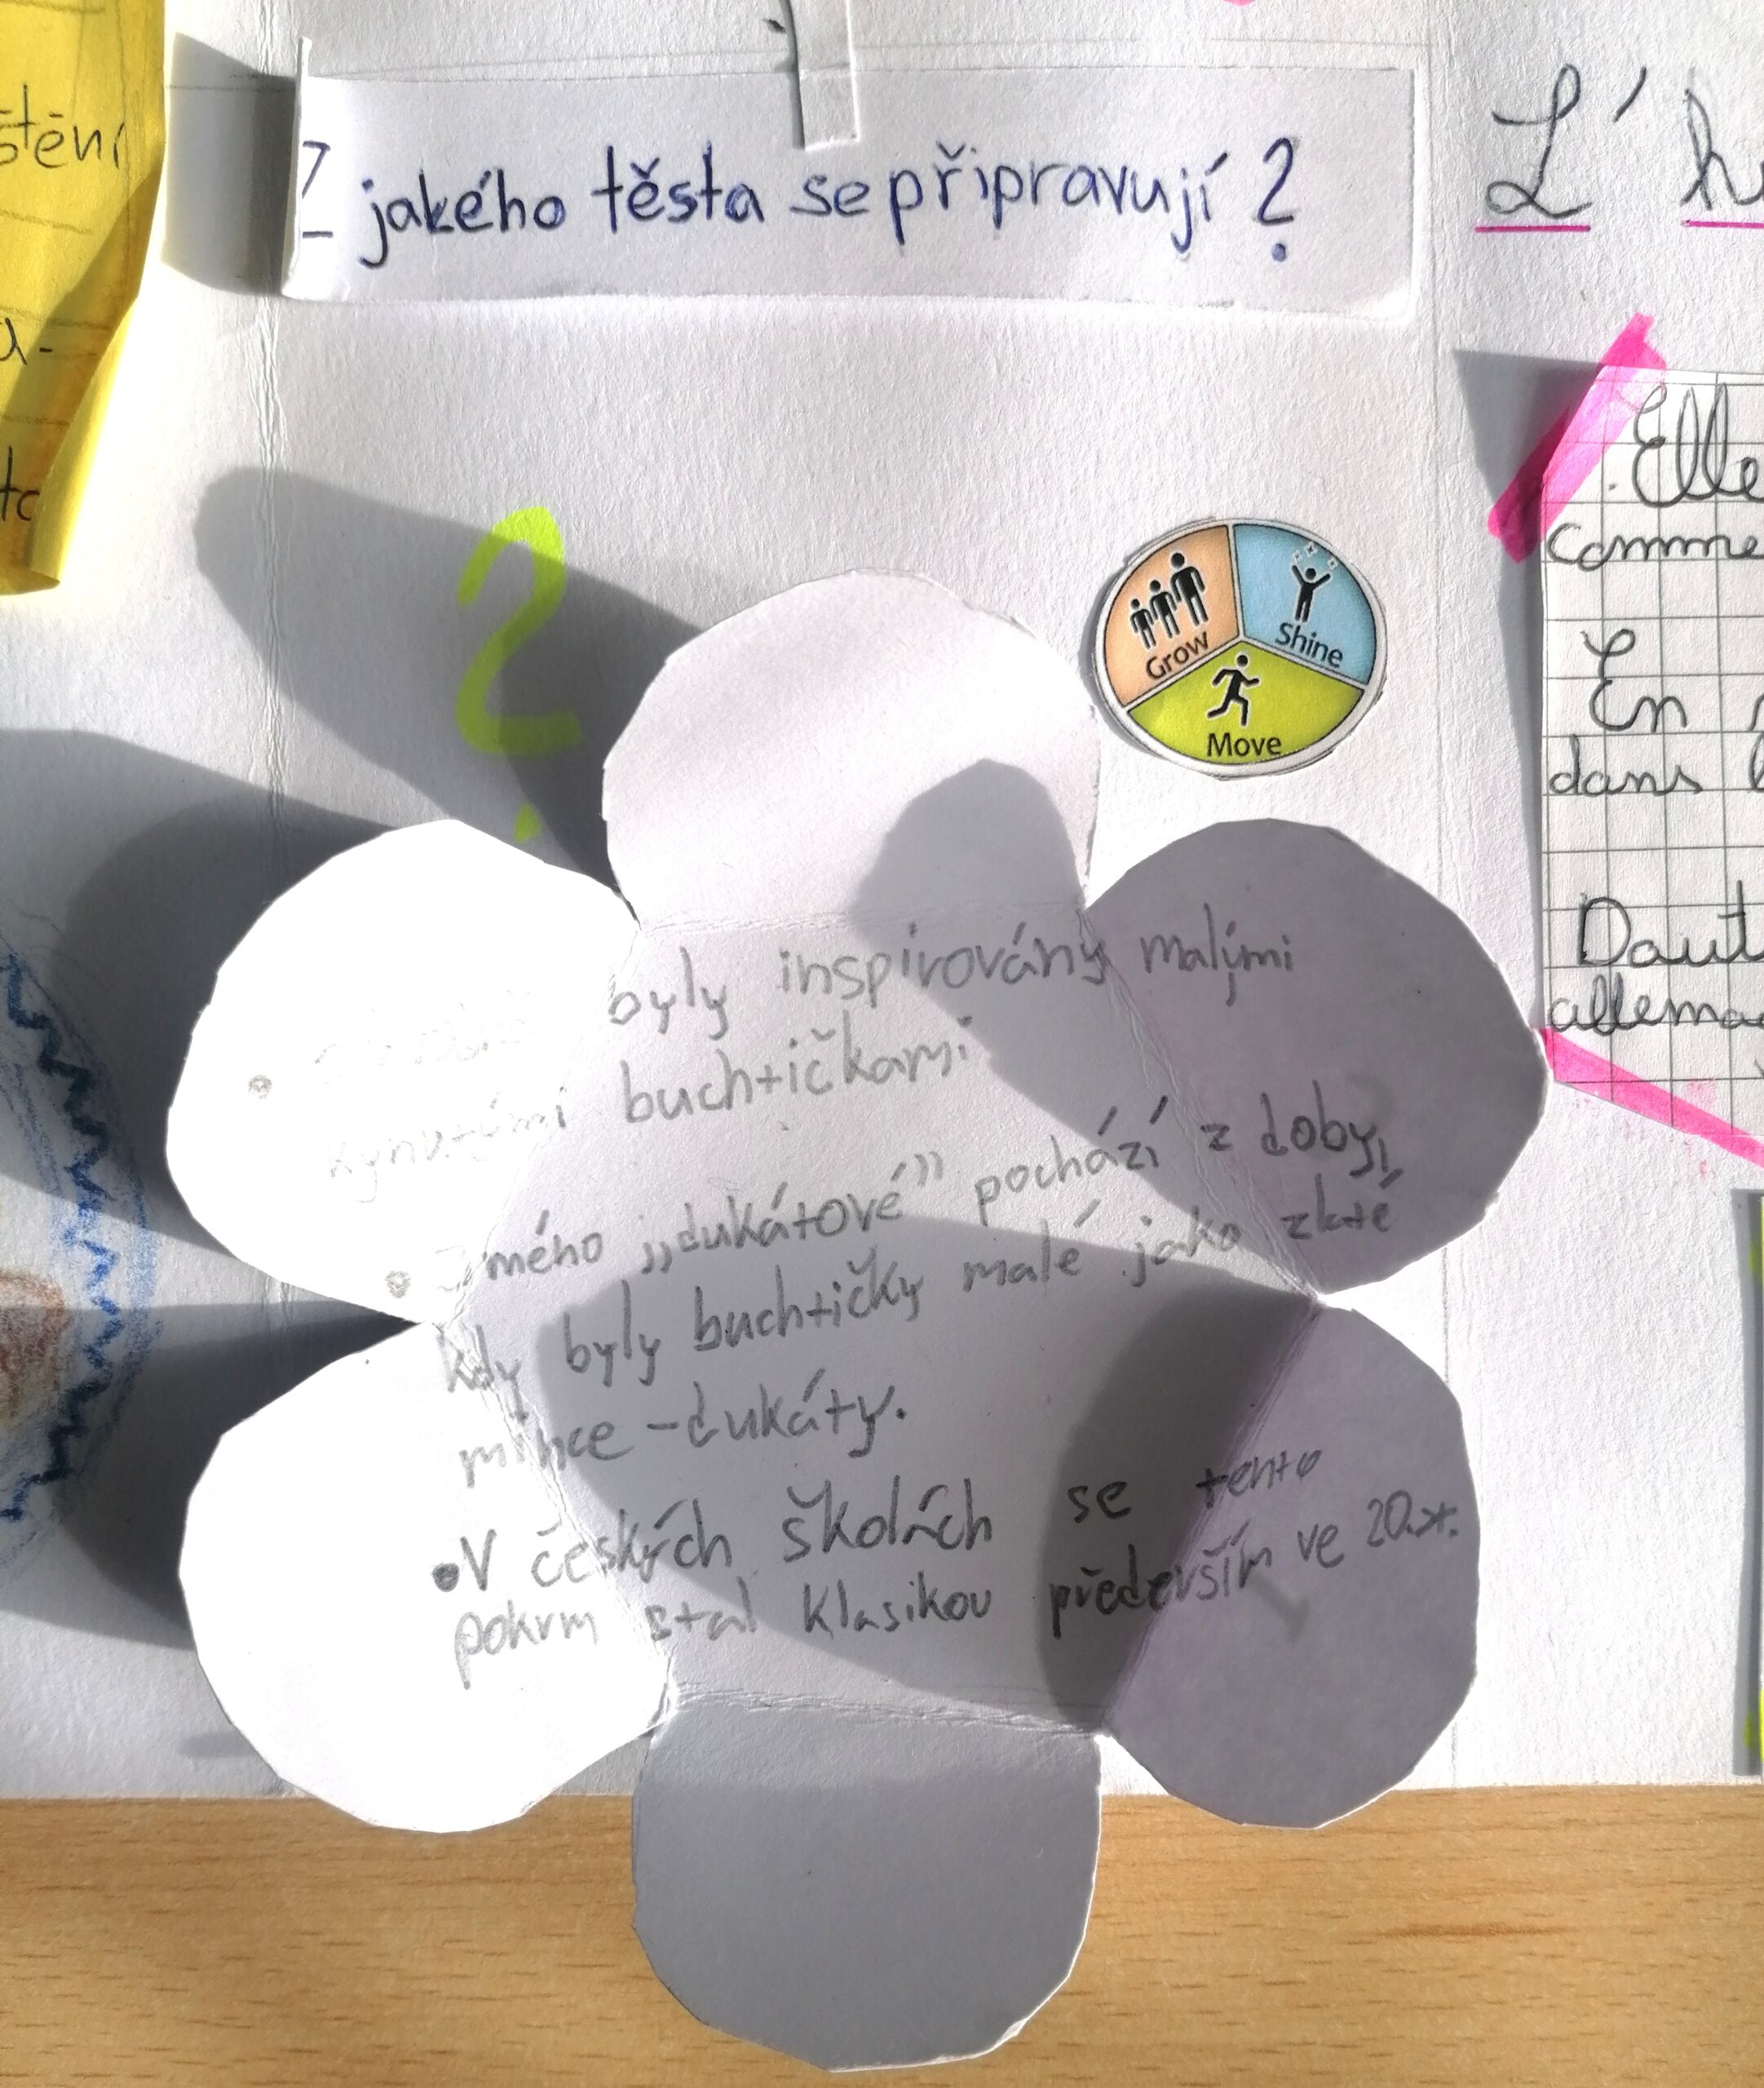 Z jakého těsta se připravují?
L'h
štění
a-
Grow
Shine
Move
Elle
comme
En
dans
Daut
allema
byly inspirovány malými
kynutými buchtičkami
mého „dukátové" pochází z doby,
kdy byly buchtičky malé jako zlaté
mince - dukáty.
• V českých školách se tento
pokrm stal klasikou především ve 20. st.